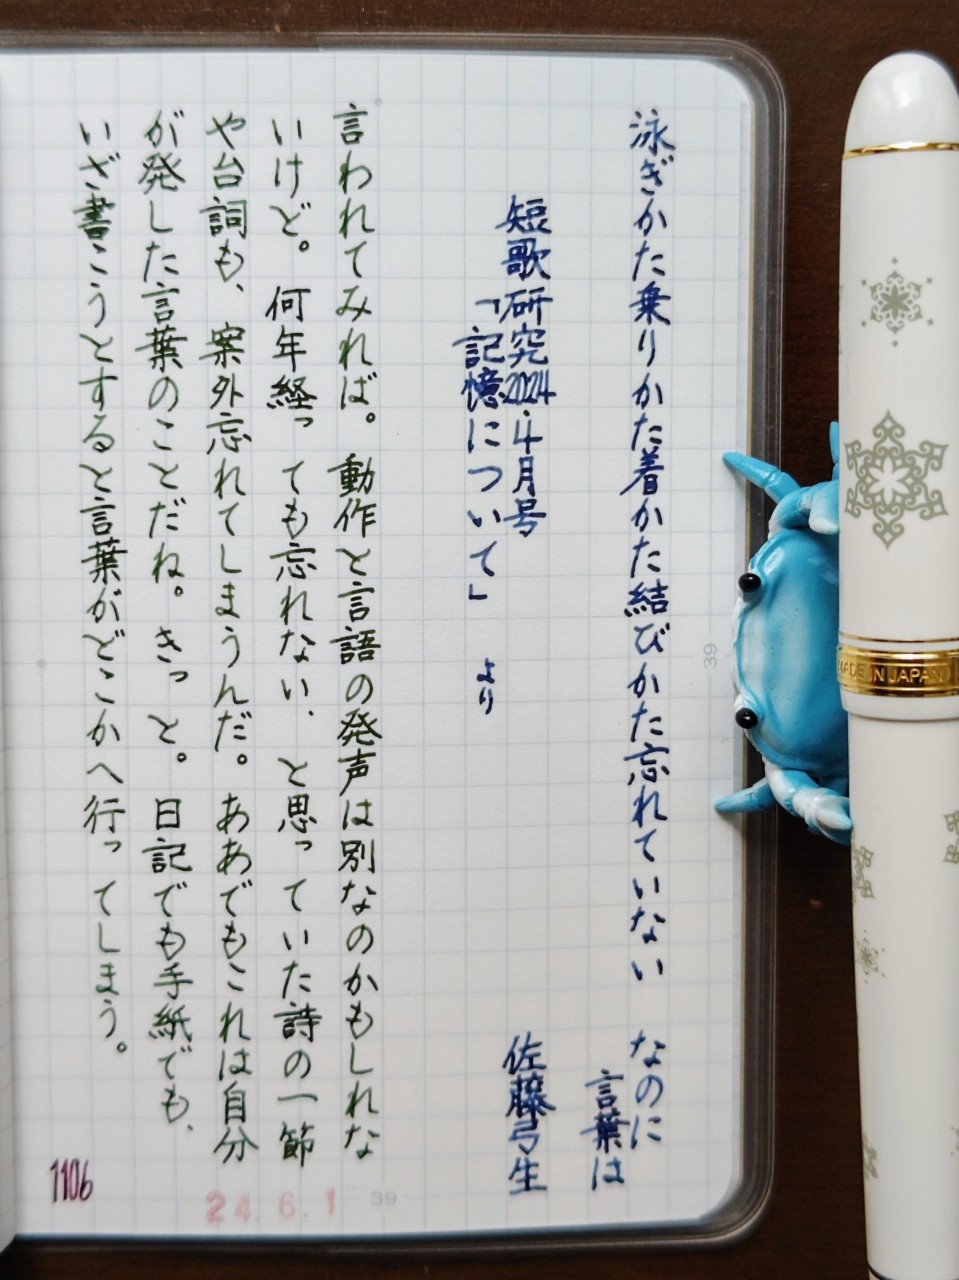 泳ぎかた乗りかた着かた結びかた忘れていない　なのに
言葉は
短歌研究2024.4月号　佐藤弓生
「記憶について」より
言われてみれば。動作と言語の発声は別なのかもしれな
いけど。何年経っても忘れない、と思っていた詩の一節
や台詞も、案外忘れてしまうんだ。ああでもこれは自分
が発した言葉のことだね。きっと。日記でも手紙でも、
いざ書こうとすると言葉がどこかへ行ってしまう。
1106
24.6.1
39
39
MADE IN JAPAN